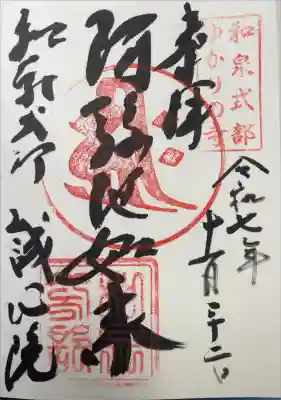 和泉式部
ゆかりの寺
令和七年
十一月二十二日
奉拝
阿弥陀如来
和泉式部 誠心院